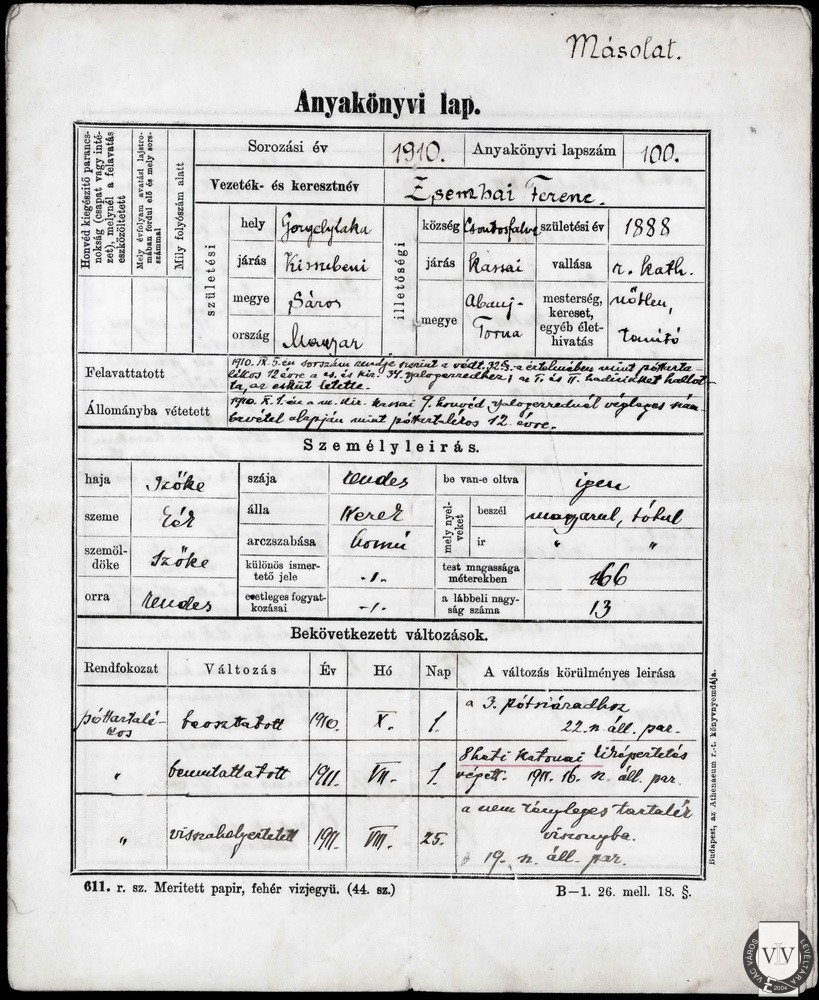 Másolat.
Anyakönyvi lap.
Honvéd kiegészitő parancsnokság (csapat vagy intézet), melynél a felavatás eszközöltetett
Mely évfolyam avatási lajstromában fordul elő és mely sorszámmal
Mily folyószám alatt
Sorozási év 1910. Anyakönyvi lapszám 100.
Vezeték- és keresztnév Zsembai Ferenc.
születési
hely Gergelylaka
járás Kisszebeni
megye Sáros
ország Magyar
illetőségi
község Csontosfalva
járás Kassai
megye Abauj-Torna
születési év 1888
vallása r. kath.
mesterség, kereset, egyéb élethivatás nőtlen, tanító
Felavattatott 1910. IX. 5.-én sorszám rendje szerint a védt. 32. §. értelmében mint póttartalékos 12 évre a cs. és kir. 34. gyalogezredhez; az I. és II. hadicikket hallotta, az esküt letette.
Állományba vétetett 1910. X. 1.-én a m. kir. kassai 9. honvéd gyalogezrednél végleges számbavétel alapján mint póttartalékos 12 évre.
Személyleirás.
haja szőke
szeme kék
szemöldöke szőke
orra rendes
szája rendes
álla kerek
arczszabása
különös ismertető jele -1.
esetleges fogyatkozásai -1.
be van-e oltva igen
mely nyelveket
beszél magyarul, tótul
ir " "
test magassága méterekben 166
a lábbeli nagyság száma 13
Bekövetkezett változások.
Rendfokozat Változás Év Hó Nap A változás körülményes leirása
póttartalékos beosztatott 1910. X. 1. a 3. pótszázadhoz 22. n. áll. par.
" bemutattatott 1911. VII. 1. 8 heti katonai kiképeztetés végett. 1911. 16. n. áll. par.
" visszahelyeztetett 1911. VIII. 25. a nem tényleges tartalék viszonyba. 19. n. áll. par.
611. r. sz. Meritett papir, fehér vizjegyü. (44. sz.)
B—1. 26. mell. 18. §.
Budapest, az Athenaeum r.-t. könyvnyomdája.
VÁC VÁROS LEVÉLTÁRA
2004